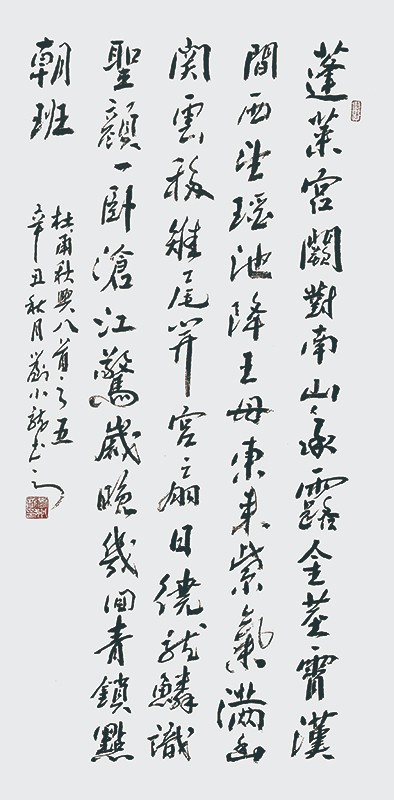 蓬莱宫闕對南山承露金莖霄漢
間西望瑶池降王母東来紫氣滿函
関雲移雉尾開宫扇日繞龍鱗識
聖顔一卧滄江驚歲晚幾回青鎖點
朝班
杜甫秋興八首之五
辛丑秋月劉小龍書